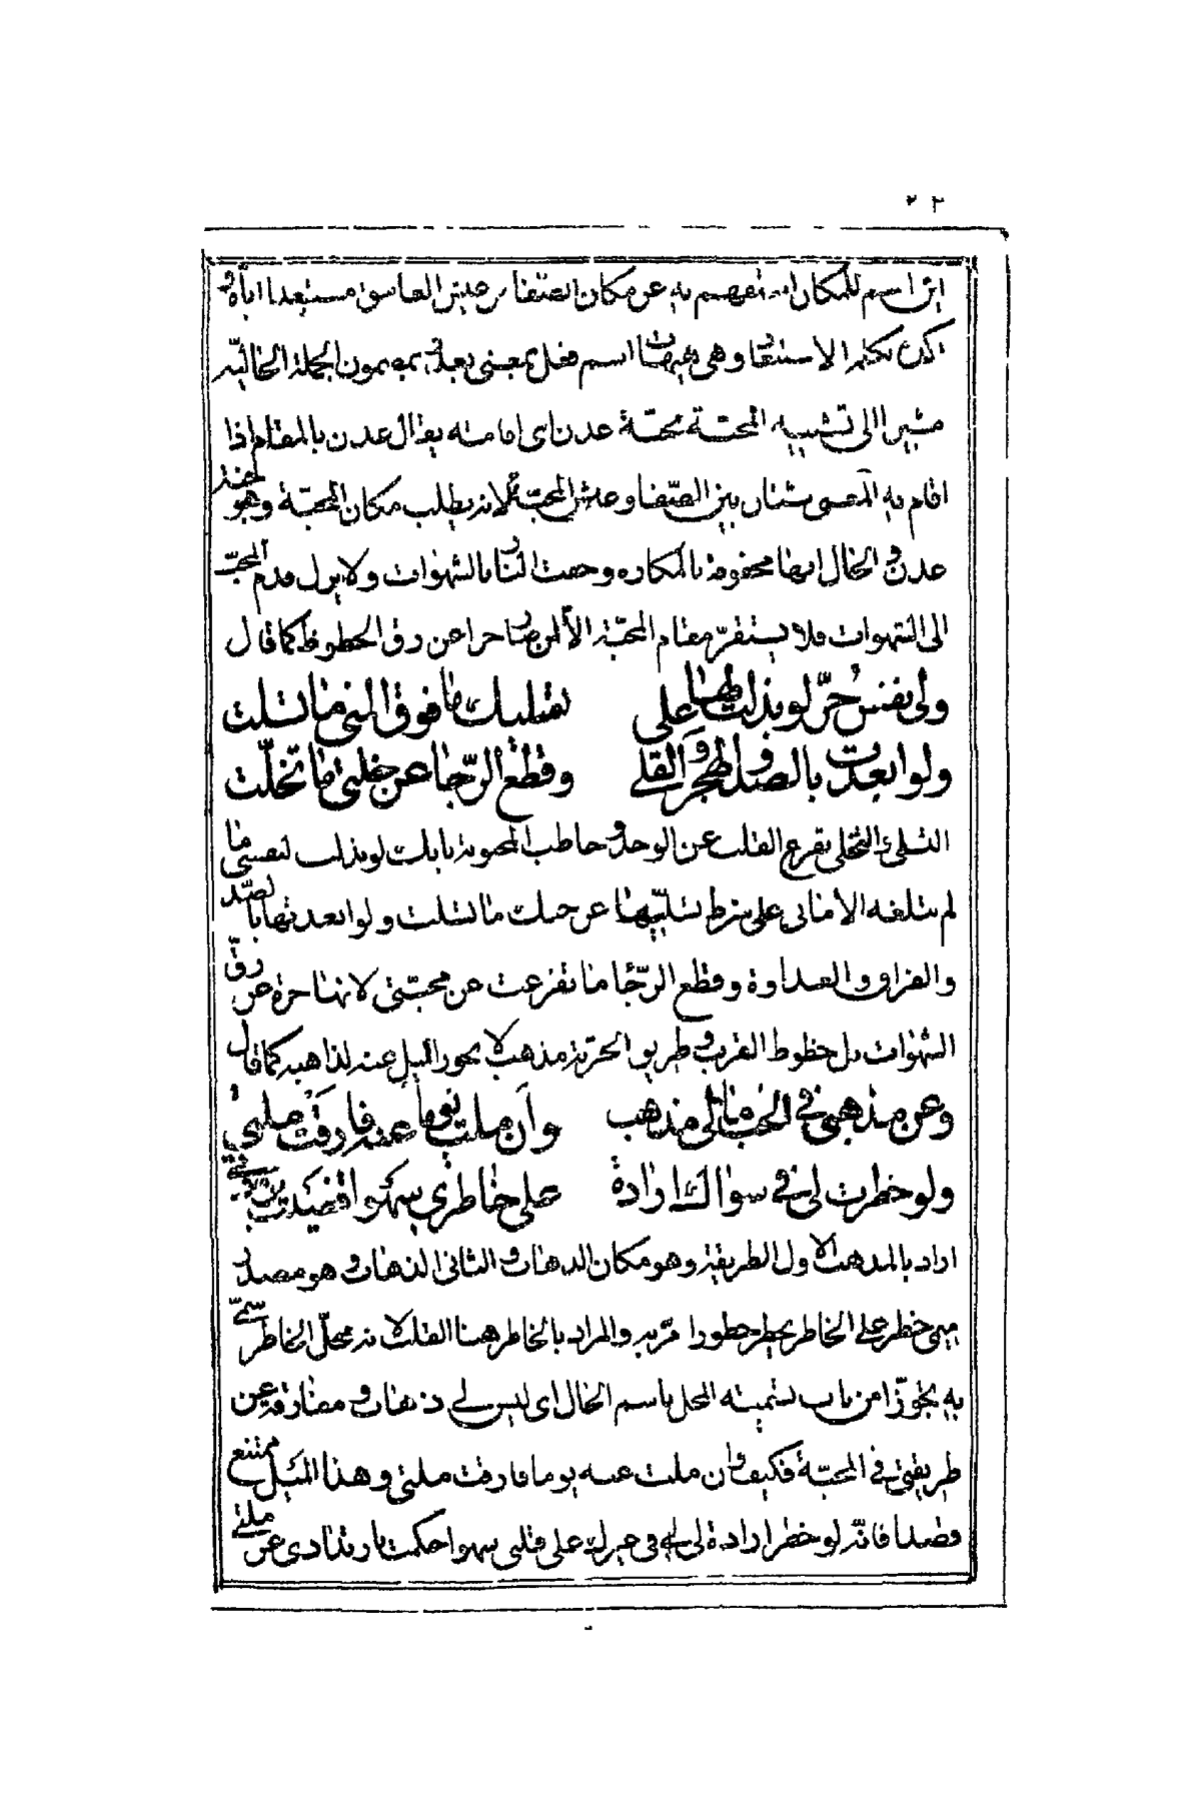 ٢٣
اين اسم للمكان استفهم به عن مكان الصفا من عيش العاشق مستبعدا اياه و
اكد بكلمة الاستبعاد وهي هيهات اسم فعل بمعنى بعد بمضمون الجملة الحالية
مشيرا الى تشبيه المحبة بجنة عدن اى اقامته يقال عدن بالمقام اذا
اقام به المعنى شتان بين الصفا وعيش المحب لانه يطلب مكان المحبة وهو جنة
عدن والحال انها محفوفة بالمكاره وحفت النار بالشهوات ولا يزل قدم المحب
الى الشهوات فلا يستقر مقام المحبة الا لمن صار حرا عن رق الحظوظ كما قال
ولى نفس حر لو بذلت لها على تسليك ما فوق المنى ما تسلت
ولو ابعدت بالصد والهجر والقلى وقطع الرجا عن خلتى ما تخلت
التسلى والتخلى تفرغ القلب عن الوجد وخاطب المحبوبة بانك لو بذلت لنفسى ما
لم تبلغه الامانى على شرط تسليها عن حبك ما تسلت ولو ابعدتها بالصد
والفراق والعداوة وقطع الرجا ما تفرغت عن محبتى لانها حرة عن رق
الشهوات بل حظوظ القرب وطريق الحرية مذهب لا يجوز الميل عنه لذاهبه كما قال
وعن مذهبى فى الحب مالى مذهب وان ملت يوما عنه فارقت ملتى
ولو خطرت لى فى سواك ارادة على خاطرى سهوا قضيت بردتى
اراد بالمذهب الاول الطريقة وهو مكان الذهاب والثانى الذهاب وهو مصدر
ميمى خطر على الخاطر يخطر خطورا مر به والمراد بالخاطر هنا القلب لانه محل الخاطر سمى
به تجوزا من باب تسمية المحل باسم الحال اى ليس لى ذهاب ومفارقة عن
طريقتى فى المحبة فكيف وان ملت عنه يوما فارقت ملتى وهذا الميل ممتنع
قصدا فانه لو خطر ارادة لى فى غيرك على قلبى سهوا حكمت بارتدادى عن ملتى